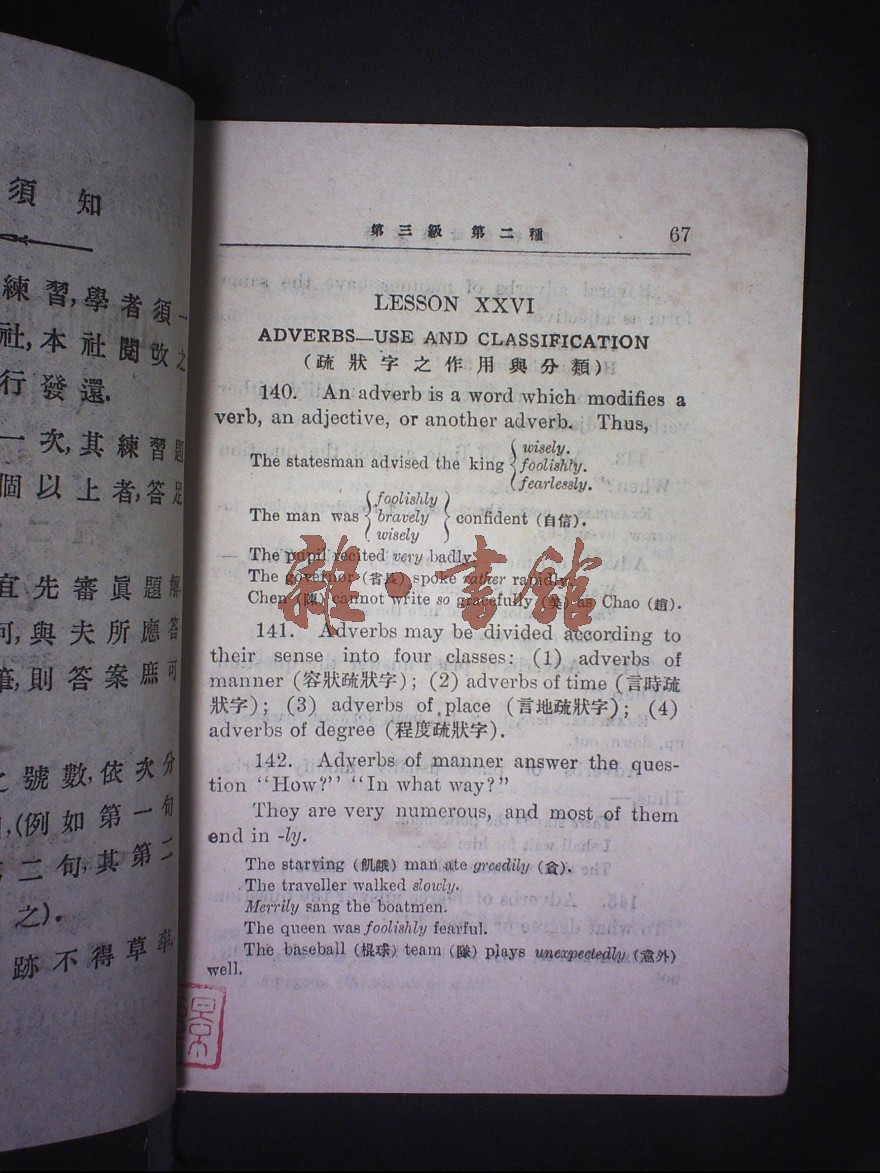 須知
練習,學者須一
社,本社閱改之
行發還.
一次,其練習題
個以上者,答足
宜先審眞題解
何,與夫所應答
筆,則答案庶可
之號數,依次分
(例如第一句
第二句,其第二
之).
跡不得草率
第三級 第二種 67
LESSON XXVI
ADVERBS—USE AND CLASSIFICATION
(疏狀字之作用與分類)
140. An adverb is a word which modifies a
verb, an adjective, or another adverb. Thus,
The statesman advised the king { wisely.
foolishly.
fearlessly.
The man was { foolishly
bravely
wisely } confident (自信).
The pupil recited very badly.
The governor (省長) spoke rather rapidly.
Chen (陳) cannot write so gracefully (美) as Chao (趙).
141. Adverbs may be divided according to
their sense into four classes: (1) adverbs of
manner (容狀疏狀字); (2) adverbs of time (言時疏
狀字); (3) adverbs of place (言地疏狀字); (4)
adverbs of degree (程度疏狀字).
142. Adverbs of manner answer the ques-
tion "How?" "In what way?"
They are very numerous, and most of them
end in -ly.
The starving (飢餓) man ate greedily (貪).
The traveller walked slowly.
Merrily sang the boatmen.
The queen was foolishly fearful.
The baseball (棍球) team (隊) plays unexpectedly (意外)
well.
雜·書館